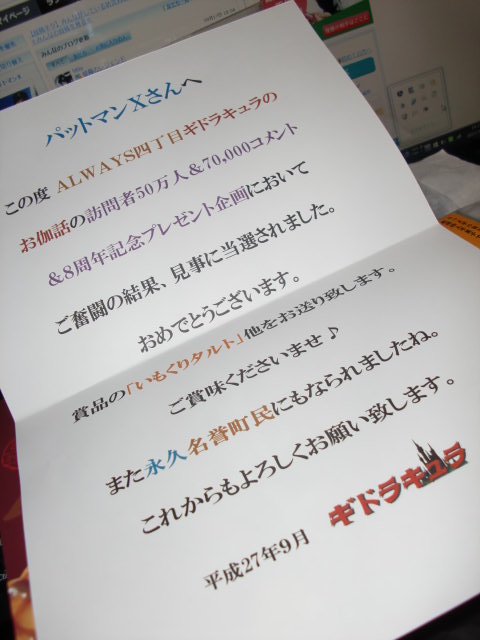 マイページ
みんなのブログ更新
パットマンXさんへ
この度 ALWAYS四丁目ギドラキュラの
お伽話の訪問者50万人＆70,000コメント
＆8周年記念プレゼント企画において
ご奮闘の結果、見事に当選されました。
おめでとうございます。
賞品の「いもくりタルト」他をお送り致します。
ご賞味くださいませ♪
また永久名誉町民にもなられましたね。
これからもよろしくお願い致します。
平成27年9月
ギドラキュラ